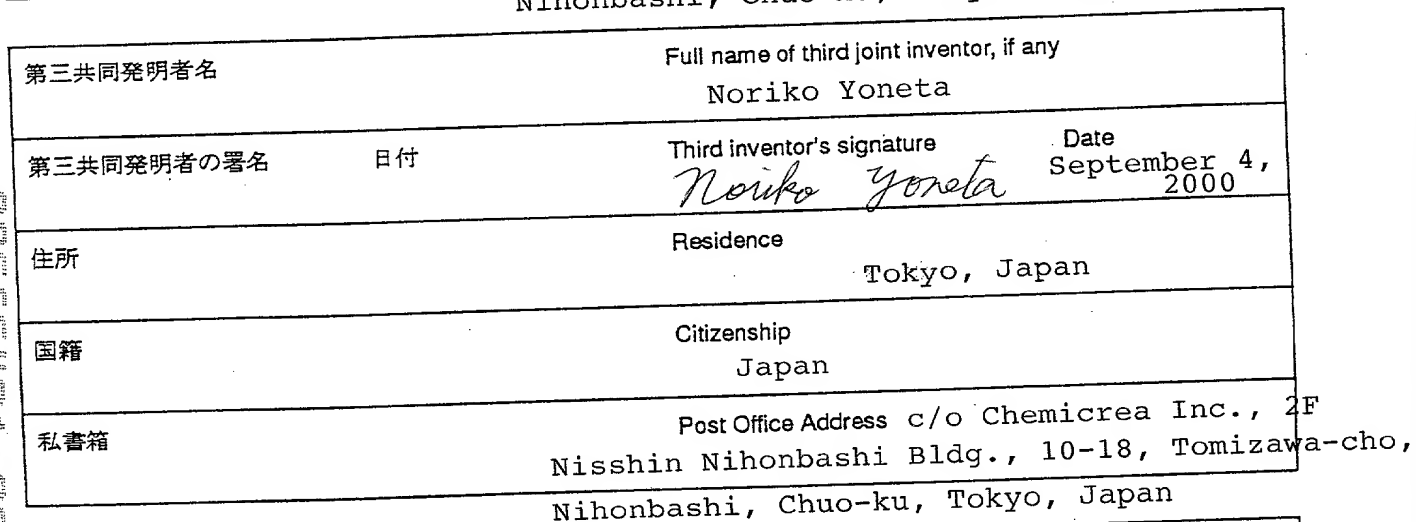 Nihonbashi, Chuo-ku,
第三共同発明者名
Full name of third joint inventor, if any
Noriko Yoneta
第三共同発明者の署名 日付
Third inventor's signature Date
Noriko Yoneta September 4,
2000
住所
Residence
Tokyo, Japan
国籍
Citizenship
Japan
私書箱
Post Office Address c/o Chemicrea Inc., 2F
Nisshin Nihonbashi Bldg., 10-18, Tomizawa-cho,
Nihonbashi, Chuo-ku, Tokyo, Japan